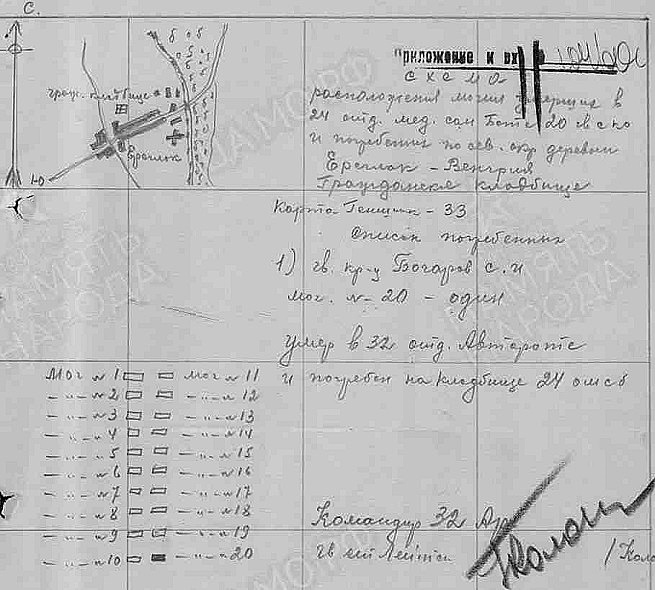 С.
граж. кладбище
Ерчлок
Ю
Приложение к вх
схема
расположения могил умерших в
24 отд. мед. сан бате 20 гв с ко
и погребенных по сев. окр деревни
Ерчлок - Венгрия
Гражданское кладбище
Карта - 33
Список погребенных
1) гв. кр-ц Бочаров С. И
мог. № 20 - один
умер в 32 отд. Автороте
и погребен на кладбище 24 омсб
Мог №1 Мог №11
-"- №2 -"- 12
-"- №3 -"- №13
-"- 4 -"- №14
-"- №5 -"- №15
-"- №6 -"- №16
-"- №7 -"- №17
-"- №8 -"- №18
-"- №9 -"- №19
-"- №10 -"- №20
Командир 32 Ар
гв
ПАМЯТЬ
НАРОДА